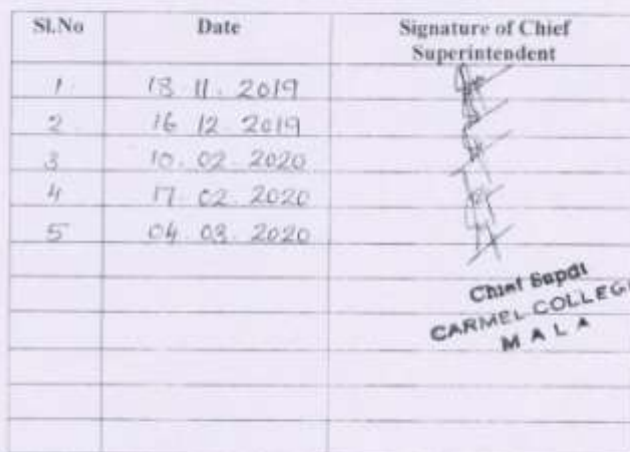 Sl.No Date Signature of Chief
Superintendent
1 18 11 . 2019
2 16 12 2019
3 10 . 02 . 2020
4 17 02 . 2020
5 04 . 03 . 2020
Chief Supdt
CARMEL COLLEGE
MALA